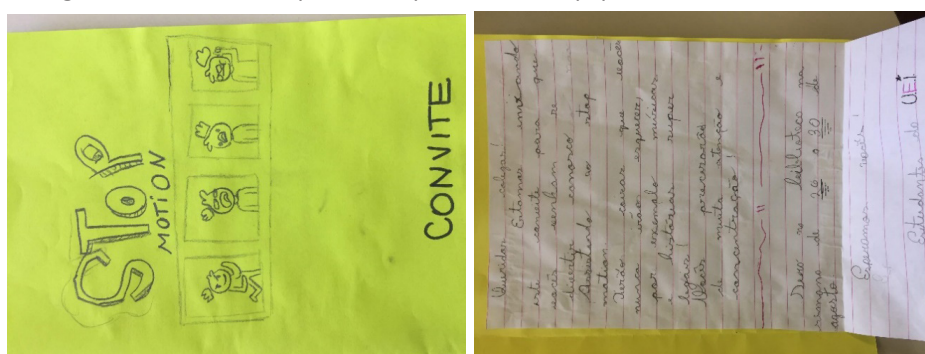 STOP
MOTION
CONVITE
Queridos colegas!
Estamos enviando
este convite para que
vocês venham se
divertir conosco
Assistindo ao stop
motion
Serão coisas que vocês
nunca irão esquecer,
por exemplo músicas
e histórias super
legais
Vocês precisarão
de muita atenção e
concentração!
Será na biblioteca na
semana de 26 a 30 de
agosto
Esperamos vocês!
Estudantes da UEI